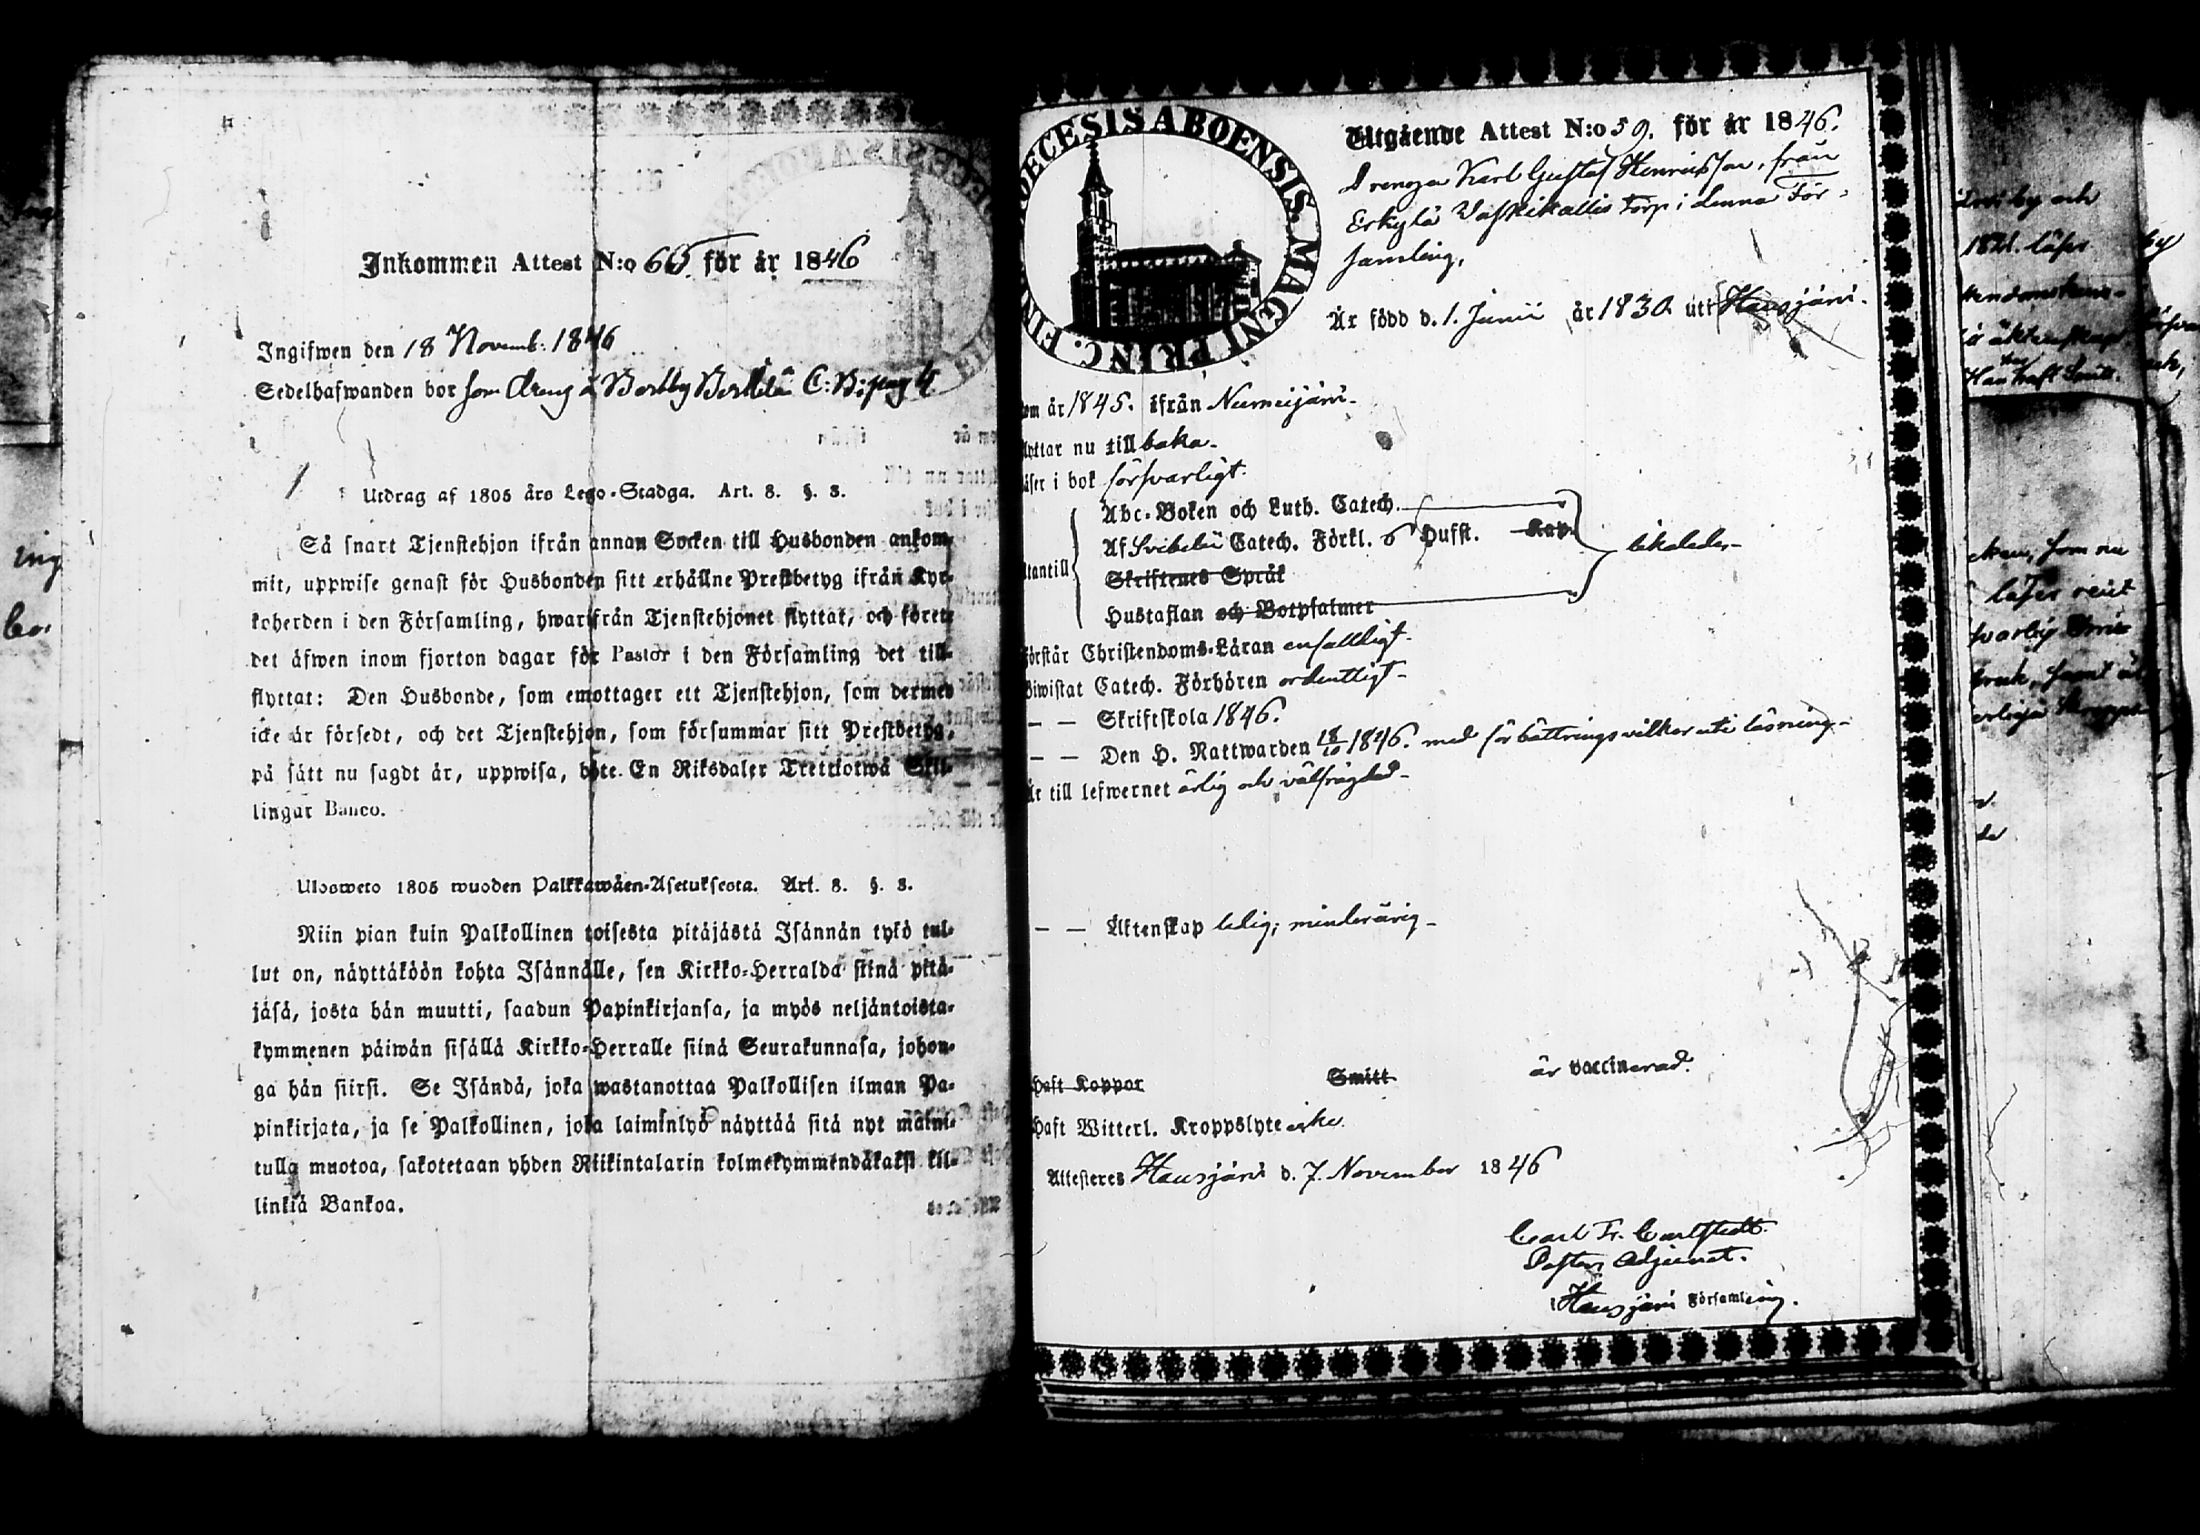 Inkommen Attest N:o 65. för år 1846
Ingifwen den 18 Novemb: 1846
Sedelhafwanden bor som dreng å C: B: pag 4
Utdrag af 1805 års Lego-Stadga. Art. 8. §. 3.
Så snart Tjenstehjon ifrån annan Socken till Husbonden ankom-
mit, uppwise genast för Husbonden sitt erhållne Prestbetyg ifrån Kyr-
koherden i den Församling, hwarifrån Tjenstehjonet flyttat, och förete
det äfwen inom fjorton dagar för Pastor i den Församling det till-
flyttat: Den Husbonde, som emottager ett Tjenstehjon, som dermed
icke är försedt, och det Tjenstehjon, som försummar sitt Prestbetyg,
på sätt nu sagdt är, uppwisa, böte En Riksdaler Trettiotwå Skil-
lingar Banco.
Ulosweto 1805 wuoden Palkkawäen-Asetuksesta. Art. 8. §. 3.
Niin pian kuin Palkollinen toisesta pitäjästä Isännän tykö tul-
lut on, näyttäköön kohta Isännälle, sen Kirkko-Herralda siinä pitä-
jäsä, josta hän muutti, saadun Papinkirjansa, ja myös neljäntoista-
kymmenen päiwän sisällä Kirkko-Herralle siinä Seurakunnasa, johon-
ga hän siirsi. Se Isändä, joka wastanottaa Palkollisen ilman Pa-
pinkirjata, ja se Palkollinen, joka laiminlyö näyttää sitä nyt maini-
tulla muotoa, sakotetaan yhden Riikintalarin kolmekymmendäkaksi kil-
linkiä Bankoa.
DIOECESIS ABOENSIS. MAGNI PRINC. FIN
Utgående Attest N:o 59. för år 1846.
Drengen Karl Gustaf Henriksson, från
Erkylä Vaskikallio Torp i denna För-
samling,
Är född d. 1. Junii år 1830. uti Hausjärvi.
om år 1845. ifrån Nurmijärvi.
lyttar nu till baka.
äser i bok försvarligt.
Abc-Boken och Luth. Catech.
Af Svebelii Catech. Förkl. 6 Hufst. Kap.
tantill Skriftenes Språk likaledes.
Hustaflan och Botpsalmer
örstår Christendoms-Läran enfaldigt.
iwistat Catech. Förhören ordentligt.
— — Skriftskola 1846.
— — Den H. Nattwarden 18/10 1846. med förbättringsvilkor uti läsning.
är till lefwernet ärlig och välfrägdad.
— — Äktenskap ledig; minderårig.
haft Koppor Smitt är vaccinerad.
haft Witterl. Kroppslyte icke.
Attesteres Hausjärvi d. 7. November 1846
Carl Fr. Carlstedt.
Pastors Adjunct.
i Hausjärvi Församling.